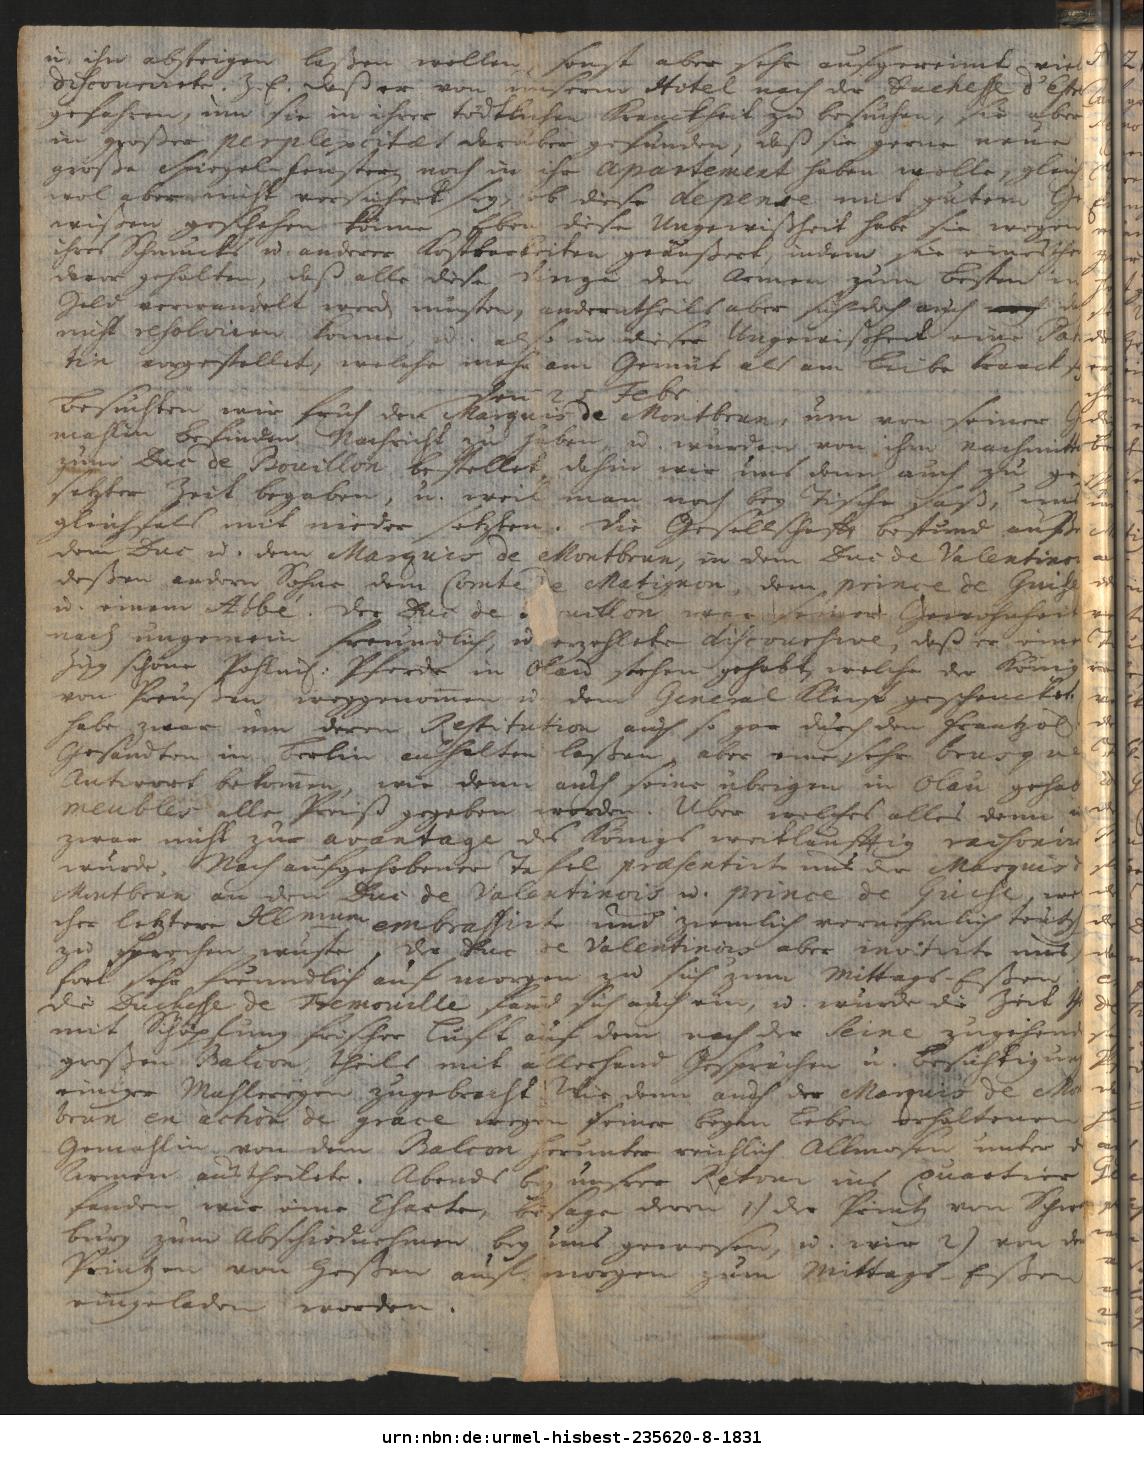 u. ihn absteigen laßen wollen, sonst aber sehr aufgereimt viel
discourirte. Z. E. daß er von unserm Hotel nach der Duchesse d'Est
gefahren, um sie in ihrer tödtlichen Kranckheit zu besuchen, sie aber
in großer perplexitæt darüber gefunden, daß sie gerne neue
große Spiegel-Fenster noch in ihr apartement haben wolle, gleich
wol aber nicht versichert sey, ob diese depence mit gutem Ge
wißen geschehen könne. Eben diese Ungewißheit habe sie wegen
ihres Schmucks u. anderer Kostbarkeiten geäußert, indem sie
davor gehalten, daß alle diese Dinge den Armen zum besten in
Geld verwandelt werden müsten, anderntheils aber sich doch auch
nicht resolviren könne, u. also in dieser Ungewisheit eine Pa
tin vorgestellet, welche mehr am Gemüt als am Leibe kranck
Den 25 Febr.
besuchten wir früh den Marquis de Montbrun, um von seiner Ge
mahlin befinden Nachricht zu haben, u. wurden von ihm nachmitt
zum Duc de Bouillon bestellet, dahin wir uns denn auch zu ge
setzter Zeit begaben, u. weil man noch bey Tische saß, uns
gleichfals mit nieder setzten. Die Gesellschafft bestund außer
dem Duc u. dem Marquis de Montbrun, in dem Duc de Valentinois
deßen andern Sohne dem Comte de Matignon, dem prince de Guise
u. einem Abbé. Der Duc de Bouillon war seiner Gewohnheit
nach ungemein freundlich, u. erzehlete discoursive, daß er eine
Zug schöne Pohlnis: Pferde in Olau stehen gehabt, welche der König
von Preußen weggenommen u. dem General Kleist geschencket
habe zwar um deren Restitution auch so gar durch den Frantzös
Gesandten in Berlin anhalten laßen, aber eine sehr brusque
Antwort bekommen, wie denn auch seine übrigen in Olau gehab
meubles alle Preiß gegeben worden. Uber welches alles denn
zwar nicht zur avantage des Königs weitläufftig raisonirt
wurde. Nach aufgehobener Tafel præsentirt uns der Marquis
Montbrun an den Duc de Valentinois u. prince de Guise, wel
cher letztere Illmum embrassirte und ziemlich vernehmlich teutsch
zu sprechen wuste, der Duc de Valentinois aber invitirte uns
sehr freundlich auf morgen zu sich zum Mittags-Eßen
die Duchesse de Tremouille fand sich auch ein, u. wurde die Zeit
mit Schöpfung frischer Luft auf dem nach der Seine zugehend
großen Balcon, theils mit allerhand Gesprächen u. Besichtigung
einiger Mahlereyen zugebracht. Wie denn auch der Marquis de Mo
brun en action de grace wegen seiner beym Leben erhaltenen
Gemahlin von dem Balcon herunter reichlich Allmosen unter d
Armen austheilete. Abends bey unserer Retour ins Quartier
fanden wir eine Charte, besage deren 1) der Printz von Schwa
burg zum Abschiednehmen bey uns gewesen, u. wir 2) von de
Printzen von Heßen auf morgen zum Mittags-Eßen
eingeladen worden.
urn:nbn:de:urmel-hisbest-235620-8-1831